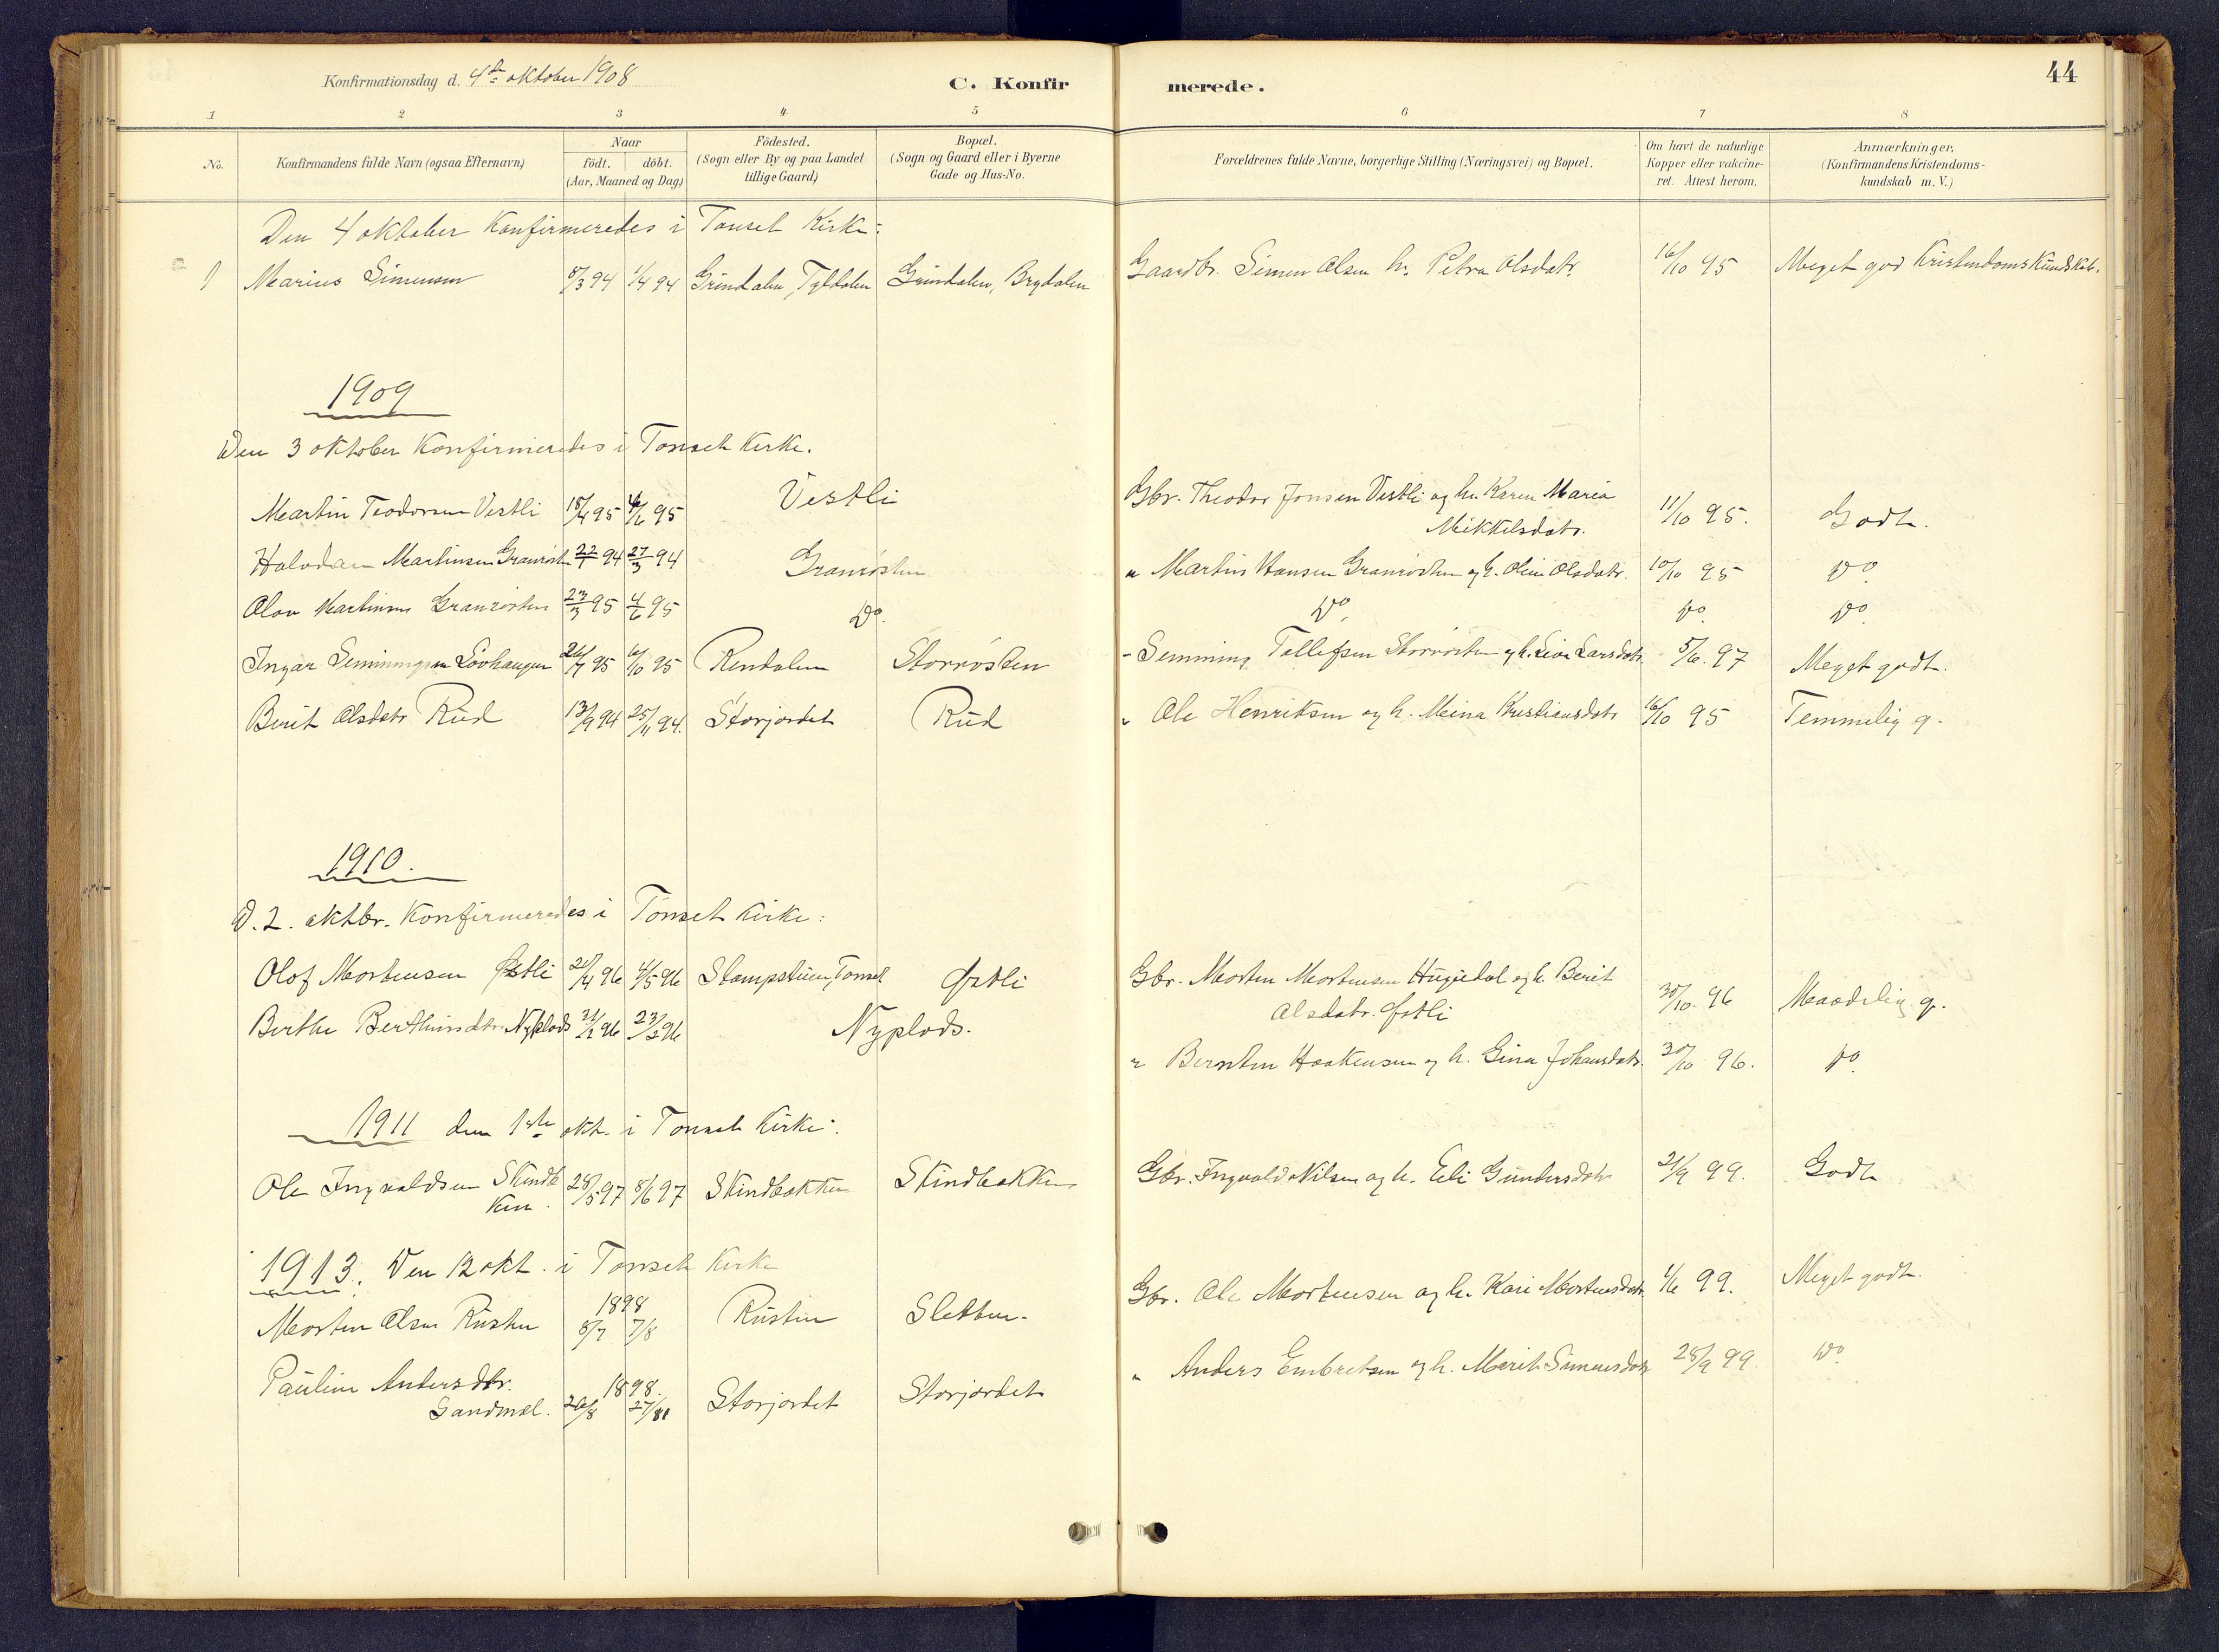 44
Konfirmationsdag d. 4de oktober 1908
C. Konfirmerede.
1 2 3 4 5 6 7 8
No.
Konfirmandens fulde Navn (ogsaa Efternavn)
Naar
födt. döbt.
(Aar, Maaned og Dag)
Födested.
(Sogn eller By og paa Landet
tillige Gaard)
Bopæl.
(Sogn og Gaard eller i Byerne
Gade og Hus-No.
Forældrenes fulde Navne, borgerlige Stilling (Næringsvei) og Bopæl.
Om havt de naturlige
Kopper eller vakcine-
ret. Attest herom.
Anmærkninger.
(Konfirmandens Kristendoms-
kundskab m. V.)
Den 4 oktober Konfirmeredes i Tönset Kirke:
1 Marius Simensen 8/3 94 1/4 94 Grindalen, Tyldalen Grindalen, Brydalen Gaardbr. Simen Olsen h. Petra Olsdatr. 16/10 95 Meget god Kristendomskundskab.
1909
Den 3 oktober Konfirmeredes i Tönset Kirke.
Martin Teodorsen Vestli 18/4 95 4/6 95 Vestli Gbr. Theodor Jonsen Vestli og h. Karen Maria
Mikkelsdatr. 11/10 95. Godt.
Halvdan Martinsen Granrösten 22/1 94 27/3 94 Granrösten " Martin Hansen Granrösten og h. Oline Olsdatr. 10/10 95 Do
Olav Martinsen Granrösten 23/3 95 4/6 95 Do. Do. Do. Do.
Ingar Semmingsen Lövhaugen 26/7 95 6/10 95 Rendalen Storrösten " Semming Tollefsen Storrösten og h. Larsdatr. 5/6. 97 Meget godt.
Berit Olsdatr Rud 13/9 94 25/11 94. Storjordet Rud " Ole Henriksen og h. Meina Kristiansdatr 16/10 95 Temmelig g.
1910.
D. 2. oktbr. Konfirmeredes i Tönset Kirke:
Olof Mortensen Østli 21/4 96 4/5 96 Stampstuen, Tönset Østli Gbr. Morten Mortensen og h. Berit
Olsdatr. Østli 30/10 96 Maadelig g.
Berthe Berthinsdtr. Nyplads 96 23/2 96 Nyplads. " Haakensen og h. Gina Johansdatr. 30/10 96. Do.
1911 den 1ste okt. i Tönset Kirke.
Ole Ingvaldsen Skindbakken 28/5 97 8/6 97 Skindbakken Skindbakken Gbr. Ingvald Nilsen og h. Eli Gundersdatr 21/9 99. Godt
1913. Den 12 okt. i Tönset Kirke
Morten Olsen Rusten 1898 8/7 7/8 Rusten Sletten. Gbr. Ole Mortensen og h. Kari Mortensdatr. 1/6 99. Meget godt.
Pauline Andersdtr.
Sandmæl. 1898. 26/8 27/81 Storjordet Storjordet " Anders Embretsen og h. Marit Simensdatr 28/9 99. Do.